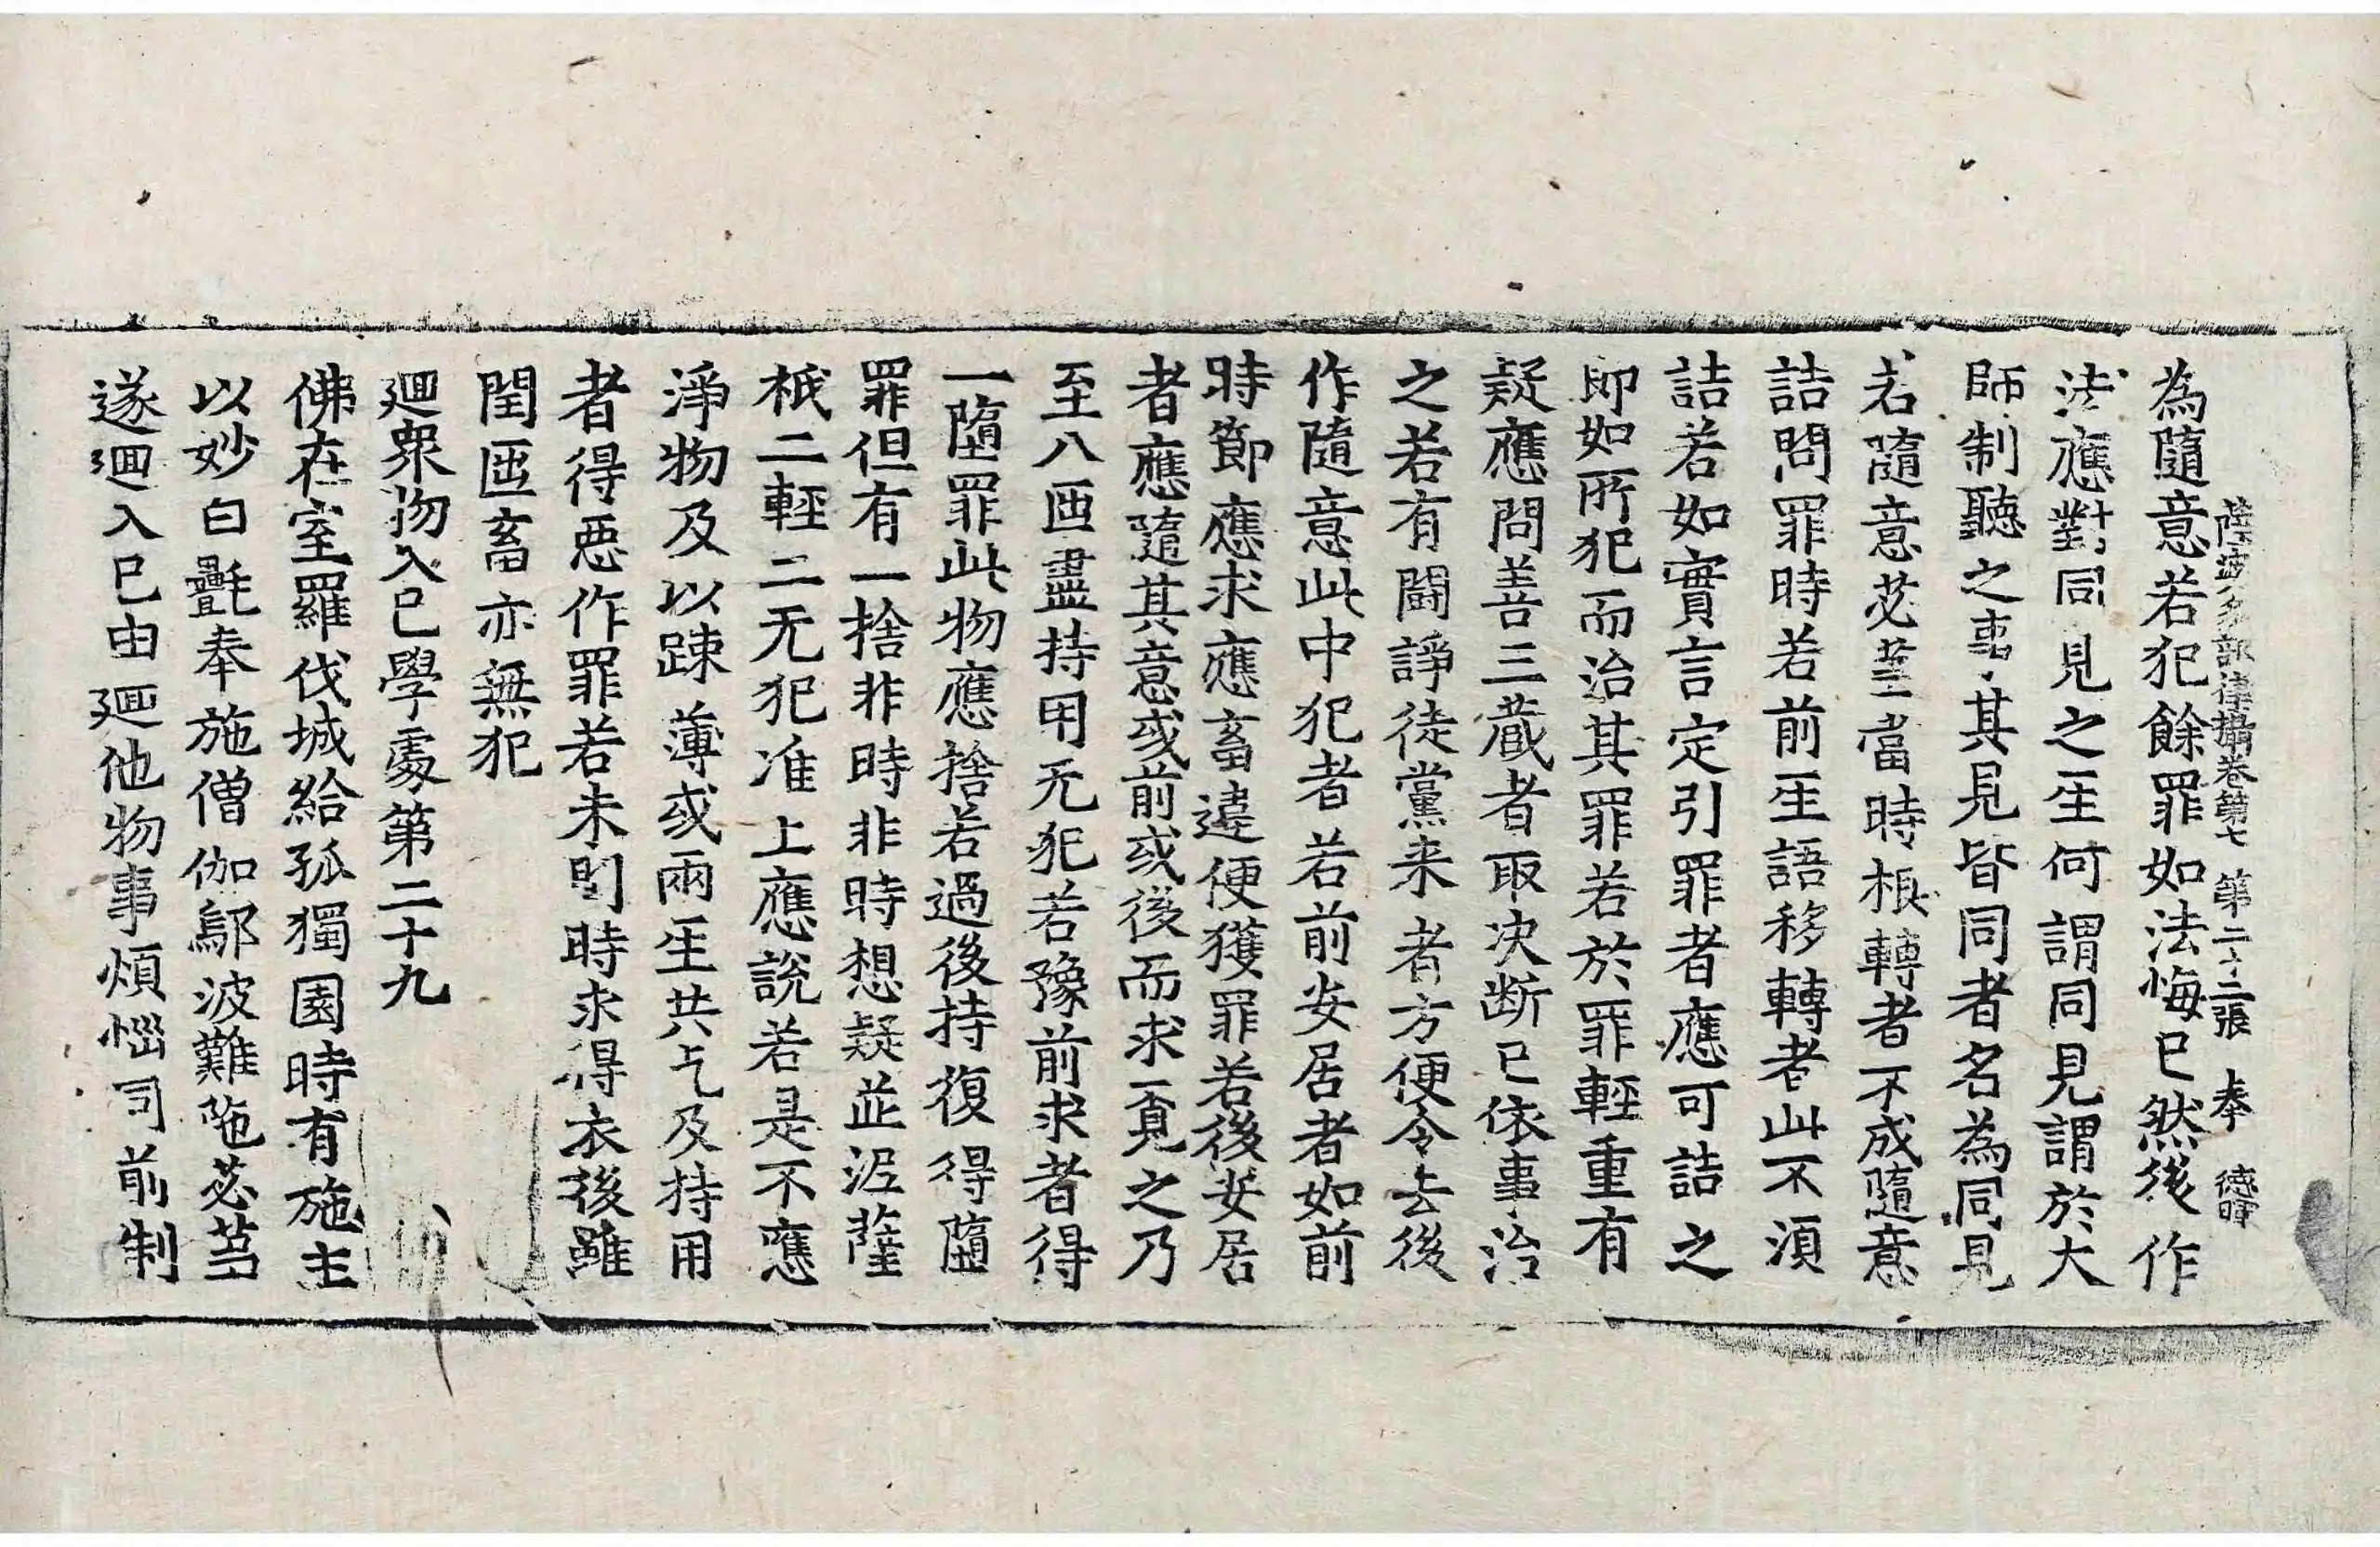 薩婆多部律攝卷第七 第二十二張 奉 德暉
為隨意若犯餘罪如法悔已然後作
法應對同見之𤯔何謂同見謂於大
師制聽之事其見皆同者名為同見
若隨意苾蒭當時根轉者不成隨意
詰問罪時若前𤯔語移轉者此不須
詰若如實言定引罪者應可詰之
即如所犯而治其罪若於罪輕重有
疑應問善三藏者取決断已依事治
之若有鬪諍徒黨来者方便令去後
作隨意此中犯者若前安居者如前
時節應求應畜違便獲罪若後安居
者應隨其意或前或後而求覔之乃
至八𤯔盡持用无犯若豫前求者得
一墮罪此物應捨若過後持復得墮
罪但有一捨非時非時想疑並泥薩
祇二輕二无犯准上應說若是不應
淨物及以踈薄或兩𤯔共乞及持用
者得惡作罪若未閏時求得衣後雖
閏迊畜亦無犯
迴衆物入己學處第二十九
佛在室羅伐城給孤獨園時有施主
以妙白㲲奉施僧伽鄔波難陁苾蒭
遂迴入己由迴他物事煩惱同前制